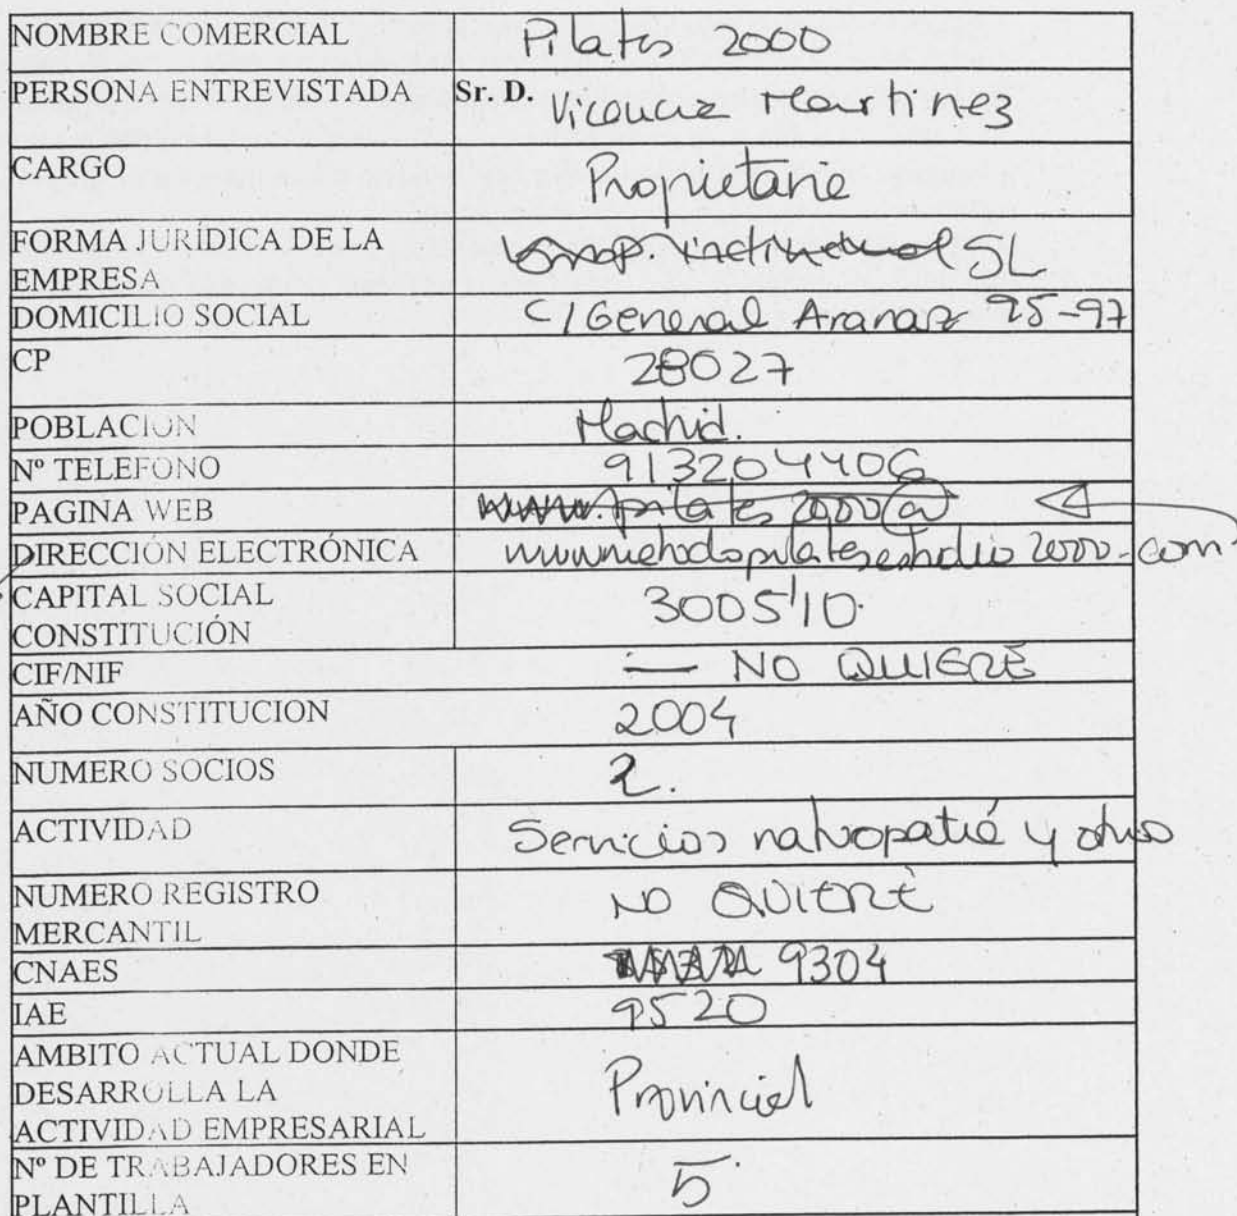 NOMBRE COMERCIAL Pilates 2000
PERSONA ENTREVISTADA Sr. D. Vicencia Martinez
CARGO Propietaria
FORMA JURÍDICA DE LA EMPRESA Emp. individual SL
DOMICILIO SOCIAL C/General Aranaz 95-97
CP 28027
POBLACION Madrid.
Nº TELEFONO 913204406
PAGINA WEB www.pilates2000@
DIRECCIÓN ELECTRÓNICA www.metodopilatesestudio2000.com
CAPITAL SOCIAL CONSTITUCIÓN 3005'10
CIF/NIF — NO QUIERE
AÑO CONSTITUCION 2004
NUMERO SOCIOS 2.
ACTIVIDAD Servicios naturopatia y otros
NUMERO REGISTRO MERCANTIL NO QUIERE
CNAES 9304
IAE 9520
AMBITO ACTUAL DONDE DESARROLLA LA ACTIVIDAD EMPRESARIAL Provincial
Nº DE TRABAJADORES EN PLANTILLA 5